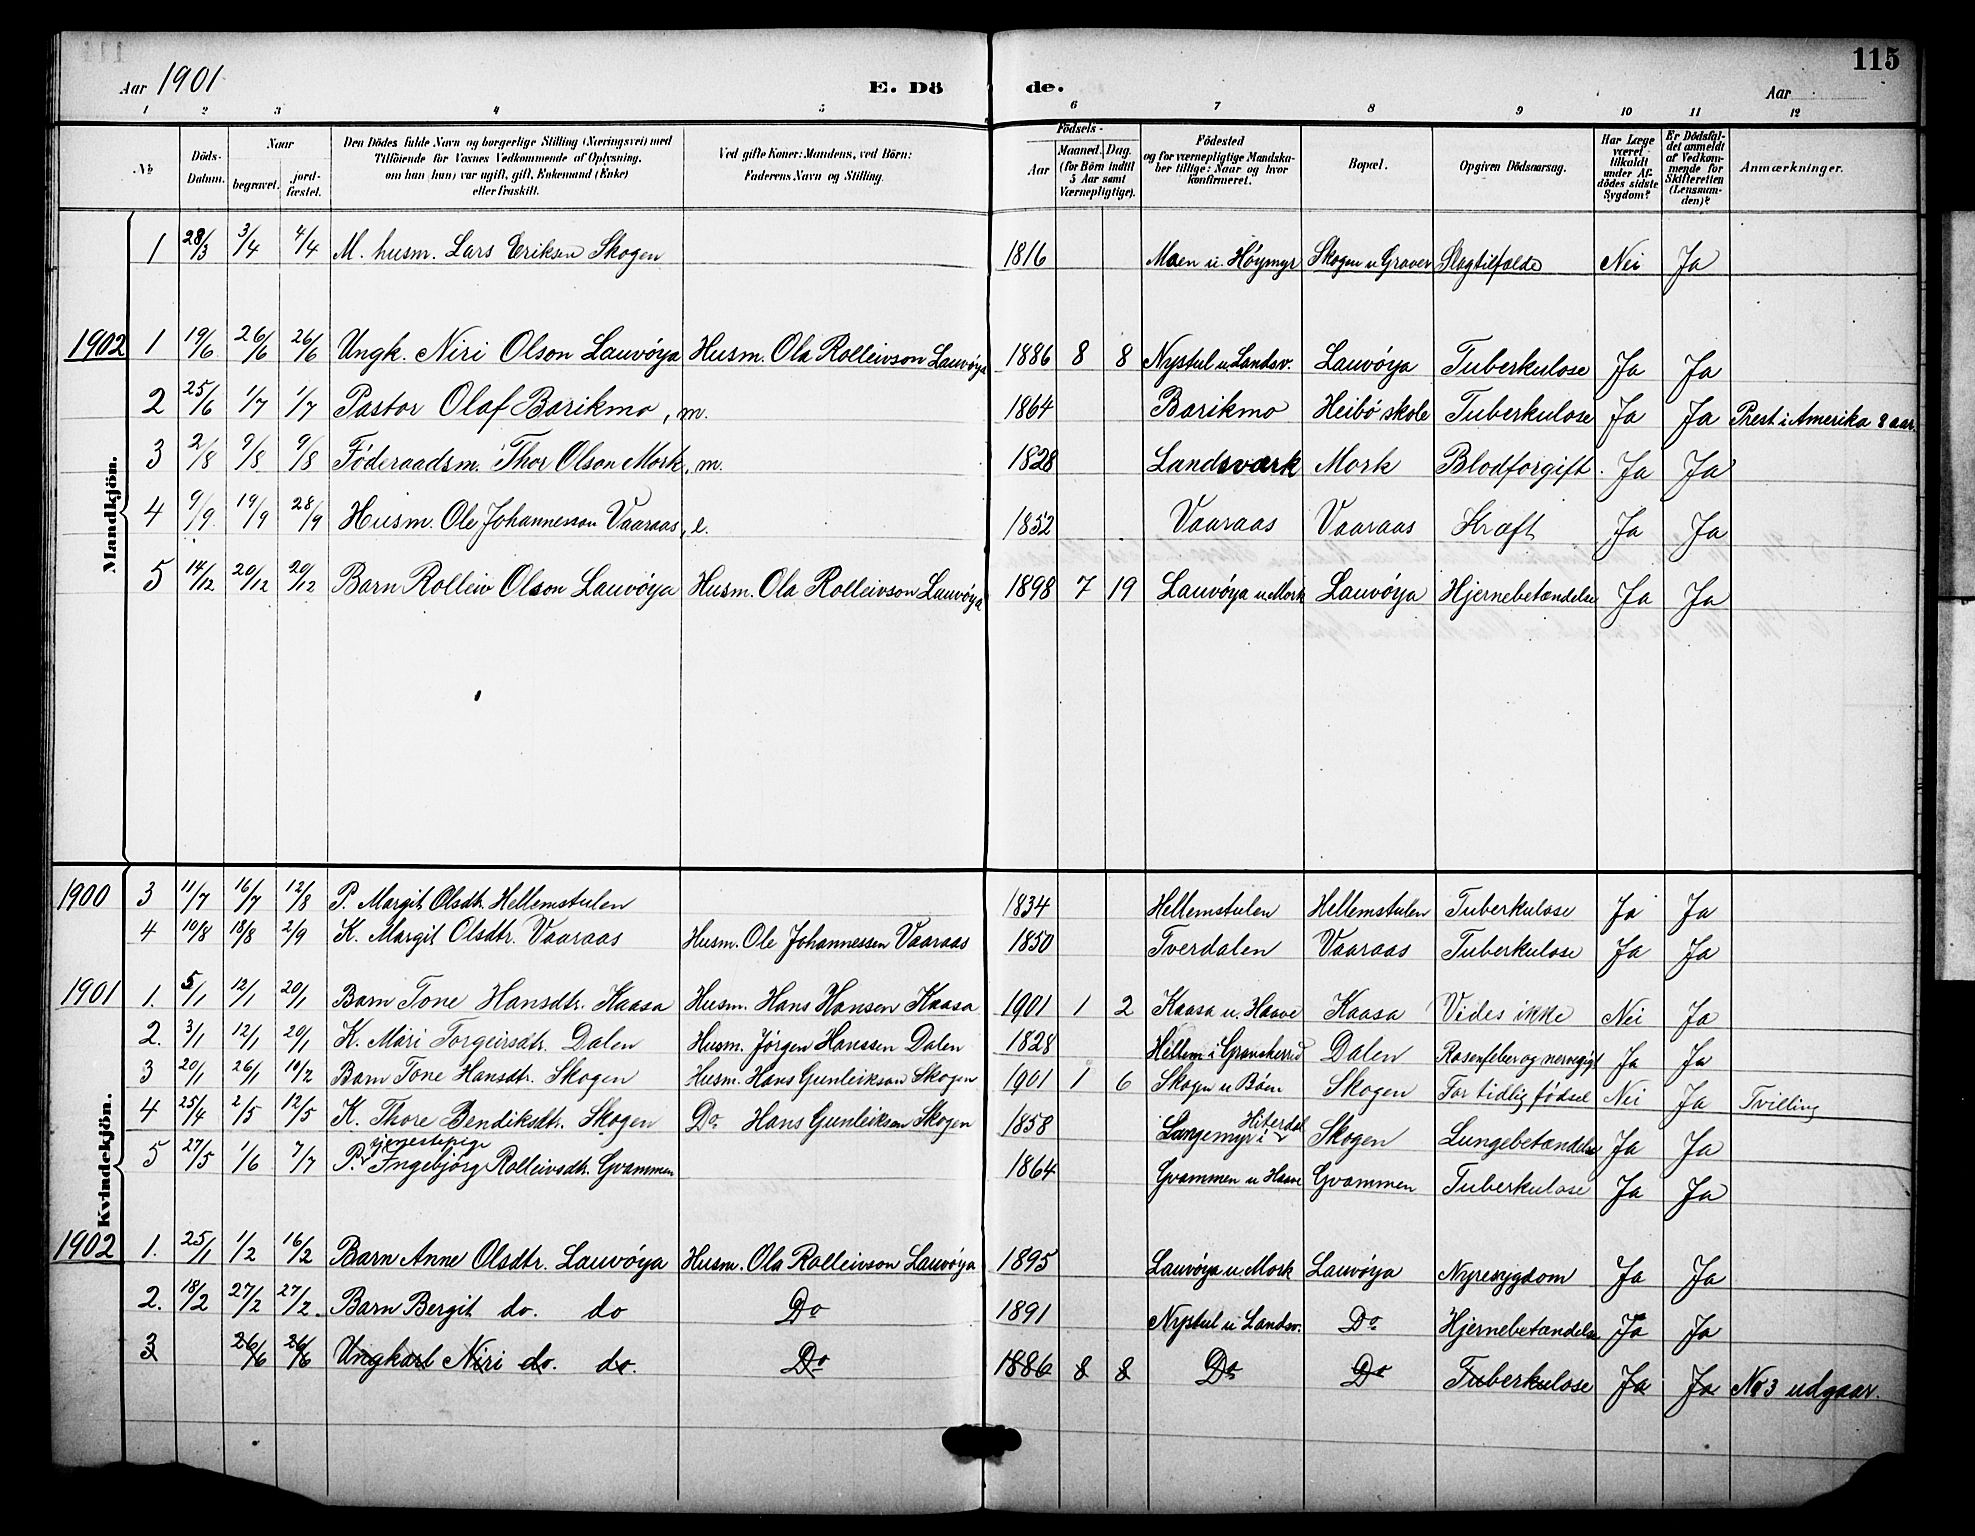 115
Aar 1901 E. Dö de. Aar
1 2 3 4 5 6 7 8 9 10 11 12
No.
Döds-Datum.
Naar
begravet.
jordfæstet.
Den Dödes fulde Navn og borgerlige Stilling (Næringsvei) med
Tilföiende for Voxnes Vedkommende af Oplysning,
om han (hun) var ugift, gift, Enkemand (Enke)
eller fraskilt.
Ved gifte Koner: Mandens, ved Börn:
Faderens Navn og Stilling.
Födsels-
Aar
Maaned. Dag.
(for Börn indtil
5 Aar samt
Værnepligtige).
Födested
og for værnepligtige Mandska-
ber tillige: Naar og hvor
konfirmeret.
Bopæl.
Opgiven Dödsaarsag.
Har Læge
været
tilkaldt
under Af-
dödes sidste
Sygdom?
Er Dödsfal-
det anmeldt
af Vedkom-
mende for
Skifteretten
(Lensman-
den)?
Anmærkninger.
Mandkjön.
1 28/3 3/4 4/4 M. husm. Lars Eriksen Skogen 1816 Moen u. Höymyr Skogen u Graver Slagtilfælde Nei Ja
1902 1 19/6 26/6 26/6 Ungk. Niri Olson Lauvöya Husm. Ola Rolleivson Lauvöya 1886 8 8 Nystul u. Landsv. Lauvöya Tuberkulose Ja Ja
2 25/6 1/7 1/7 Pastor Olaf Barikmo, m. 1864 Barikmo Heibö skole Tuberkulose Ja Ja Prest i Amerika 8 aar.
3 2/8 9/8 9/8 Föderaadsm. Thor Olson Mork, m. 1828 Landsværk Mork Blodforgift. Ja Ja
4 9/9 19/9 28/9 Husm. Ole Johannesson Vaaraas, e. 1852 Vaaraas Vaaraas Kræft Ja Ja
5 14/12 20/12 20/12 Barn Rolleiv Olson Lauvöya Husm. Ola Rolleivson Lauvöya 1898 7 19 Lauvöya u. Mork Lauvöya Hjernebetændelse Ja Ja
Kvindekjön.
1900 3 11/7 16/7 12/8 P. Margit Olsdtr Hellemstulen 1834 Hellemstulen Hellemstulen Tuberkulose Ja Ja
4 10/8 18/8 2/9 K. Margit Olsdtr. Vaaraas Husm. Ole Johannessen Vaaraas 1850 Tverdalen Vaaraas Tuberkulose Ja Ja
1901 1. 5/1 12/1 20/1 Barn Tone Hansdtr. Kaasa Husm. Hans Hansen Kaasa 1901 1 2 Kaasa u. Haave Kaasa Vides ikke Nei Ja
2. 3/1 12/1 20/1 K. Mari Torgeirsdtr. Dalen Husm. Jörgen Hanssen Dalen 1828 Hellem i Gransherred Dalen Rosenfeber og nervegigt Ja Ja
3 20/1 26/1 10/2 Barn Tone Hansdtr. Skogen Husm. Hans Gunleikson Skogen 1901 1 6 Skogen u Böen Skogen For tidlig födsel Nei Ja Tvilling
4 25/4 2/5 12/5 K. Thore Bendiksdtr. Skogen Do Hans Gunleiksen Skogen 1858 Langemyr i Hiterdal Skogen Lungebetændelse Ja Ja
tjenestepige
5 27/5 1/6 7/7 P. Ingebjörg Rolleivsdtr. Gvammen 1864 Gvammen u Haave Gvammen Tuberkulose Ja Ja
1902 1. 25/1 1/2 16/2 Barn Anne Olsdtr. Lauvöya Husm. Ola Rolleivson Lauvöya 1895 Lauvöya u. Mork Lauvöya Nyresygdom Ja Ja
2. 18/2 27/2 27/2. Barn Bergit do. do Do 1891 Nystul u Landsv. Do Hjernebetændelse Ja Ja
3 26/6 26/6 Ungkarl Niri do. do. Do 1886 8 8 Do Do Tuberkulose Ja Ja No 3 udgaar.